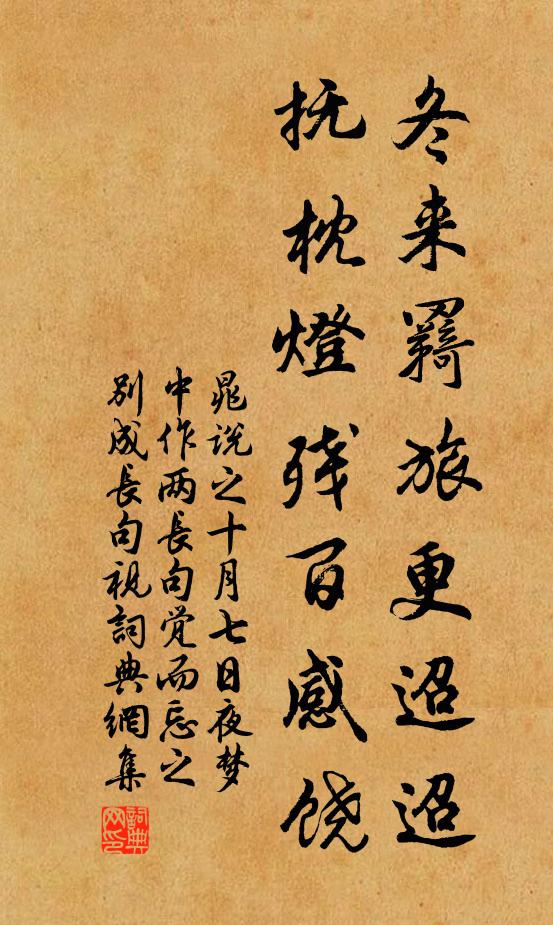 冬来羇旅更迢迢
抚枕燈残百感饶
晁说之十月七日夜梦
中作两长句觉而忘之
别成长句视詞典網集
詞典网印